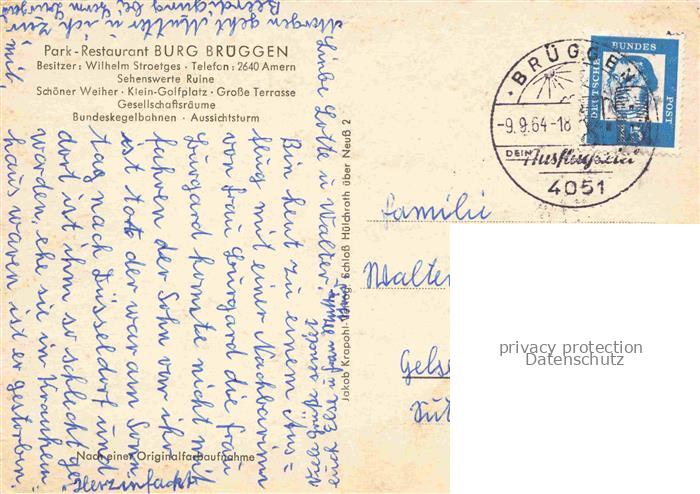 Park-Restaurant BURG BRÜGGEN
Besitzer: Wilhelm Stroetges · Telefon: 2640 Amern
Sehenswerte Ruine
Schöner Weiher · Klein-Golfplatz · Große Terrasse
Gesellschaftsräume
Bundeskegelbahnen · Aussichtsturm
Liebe Lotte u Walter,
Bin heut zu einem Aus=
flug mit einer Nachbarinn
von Frau Lurgard die Frau
Lurgard konnte nicht mit
fahren der Sohn von ihr
ist tot der war am Sonn
tag nach Düsseldorf und
dort ist ihm so schlecht ge
worden, ehe sie im Kranken
haus waren ist er gestorben.
"Herzinfackt"
Morgen geht Mutter u ich zur
Beerdigung bei Herrn Lurgard
mit.
Viele Grüße sendet
Else u
Nach einer Originalfarbaufnahme
Jakob Krapohl-Verlag, Schloß Hülchrath über Neuß 2
BRÜGGEN
-9.9.64-18
DEIN Ausflugsziel
4051
DEUTSCHE BUNDES POST
15
Familie
Walter
Gelse
privacy protection
Datenschutz